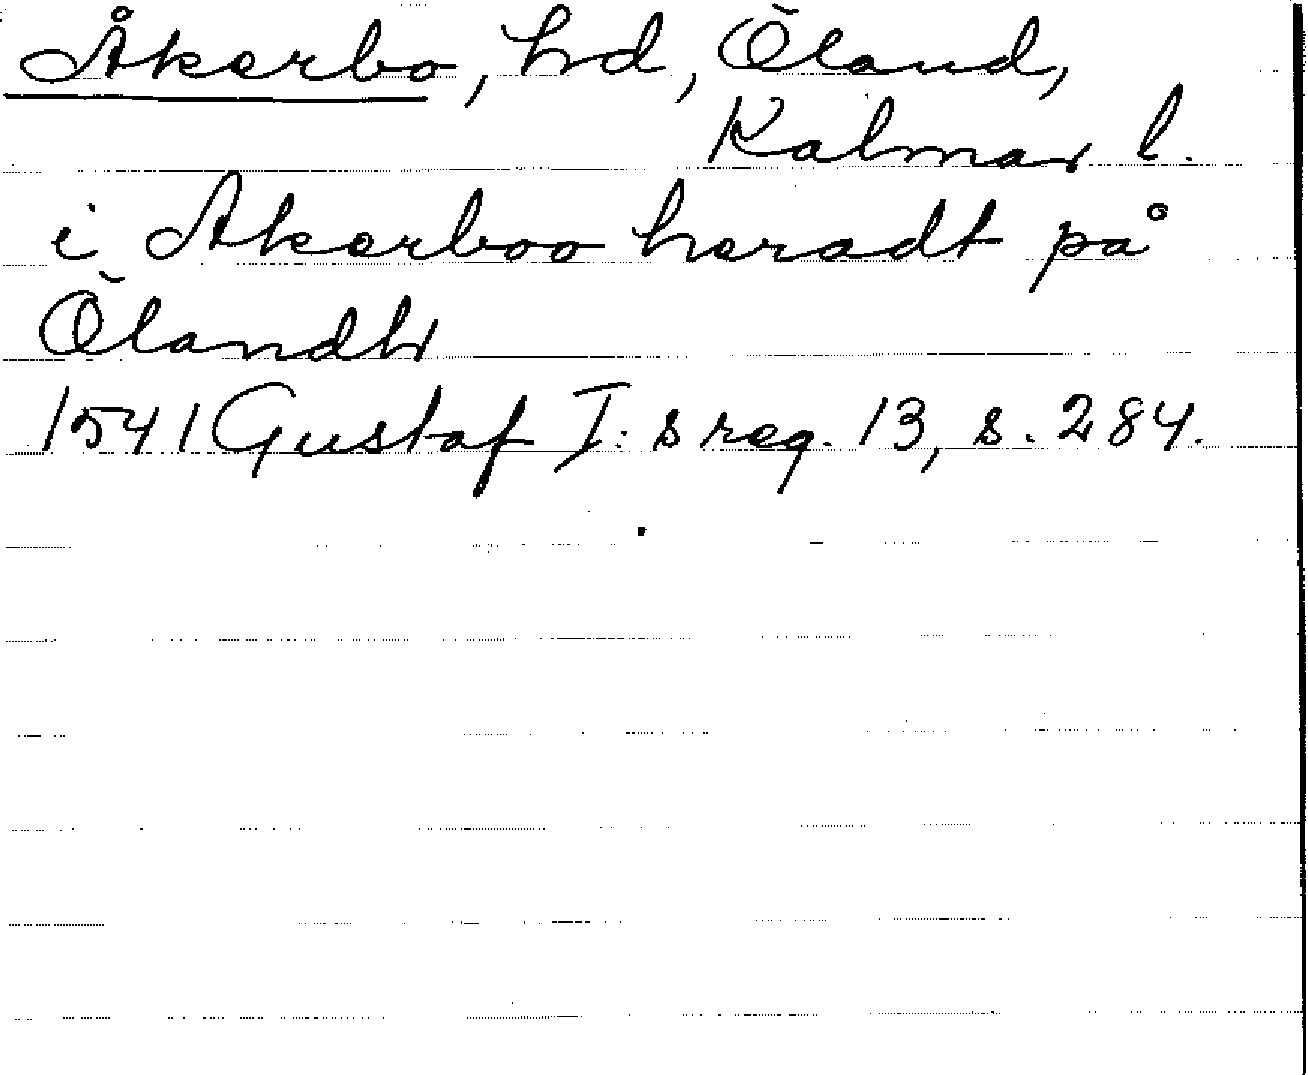 Åkerbo, hd, Öland,
Kalmar l.
i Akerboo heradt på
Ölandh
1541 Gustaf I: s reg. 13, s. 284.